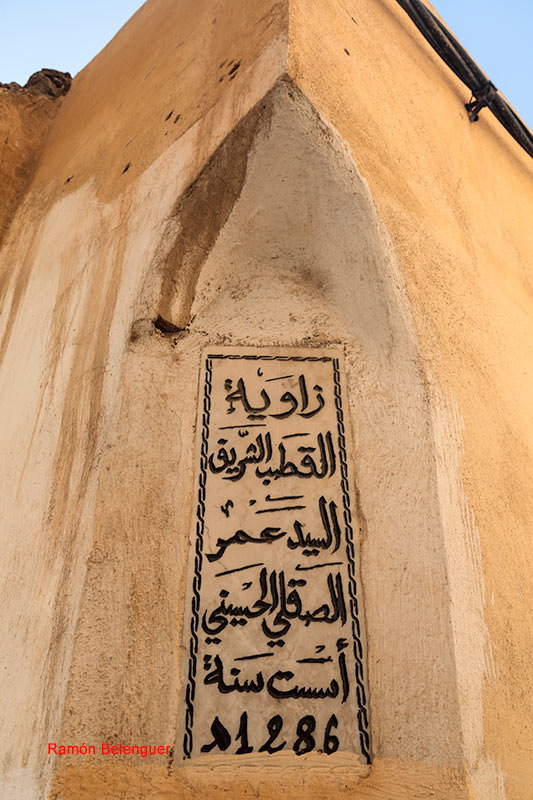 زاوية
القطب الشريف
السيد عمر
الصقلي الحسيني
أسست سنة
1286 هـ
Ramón Belenguer